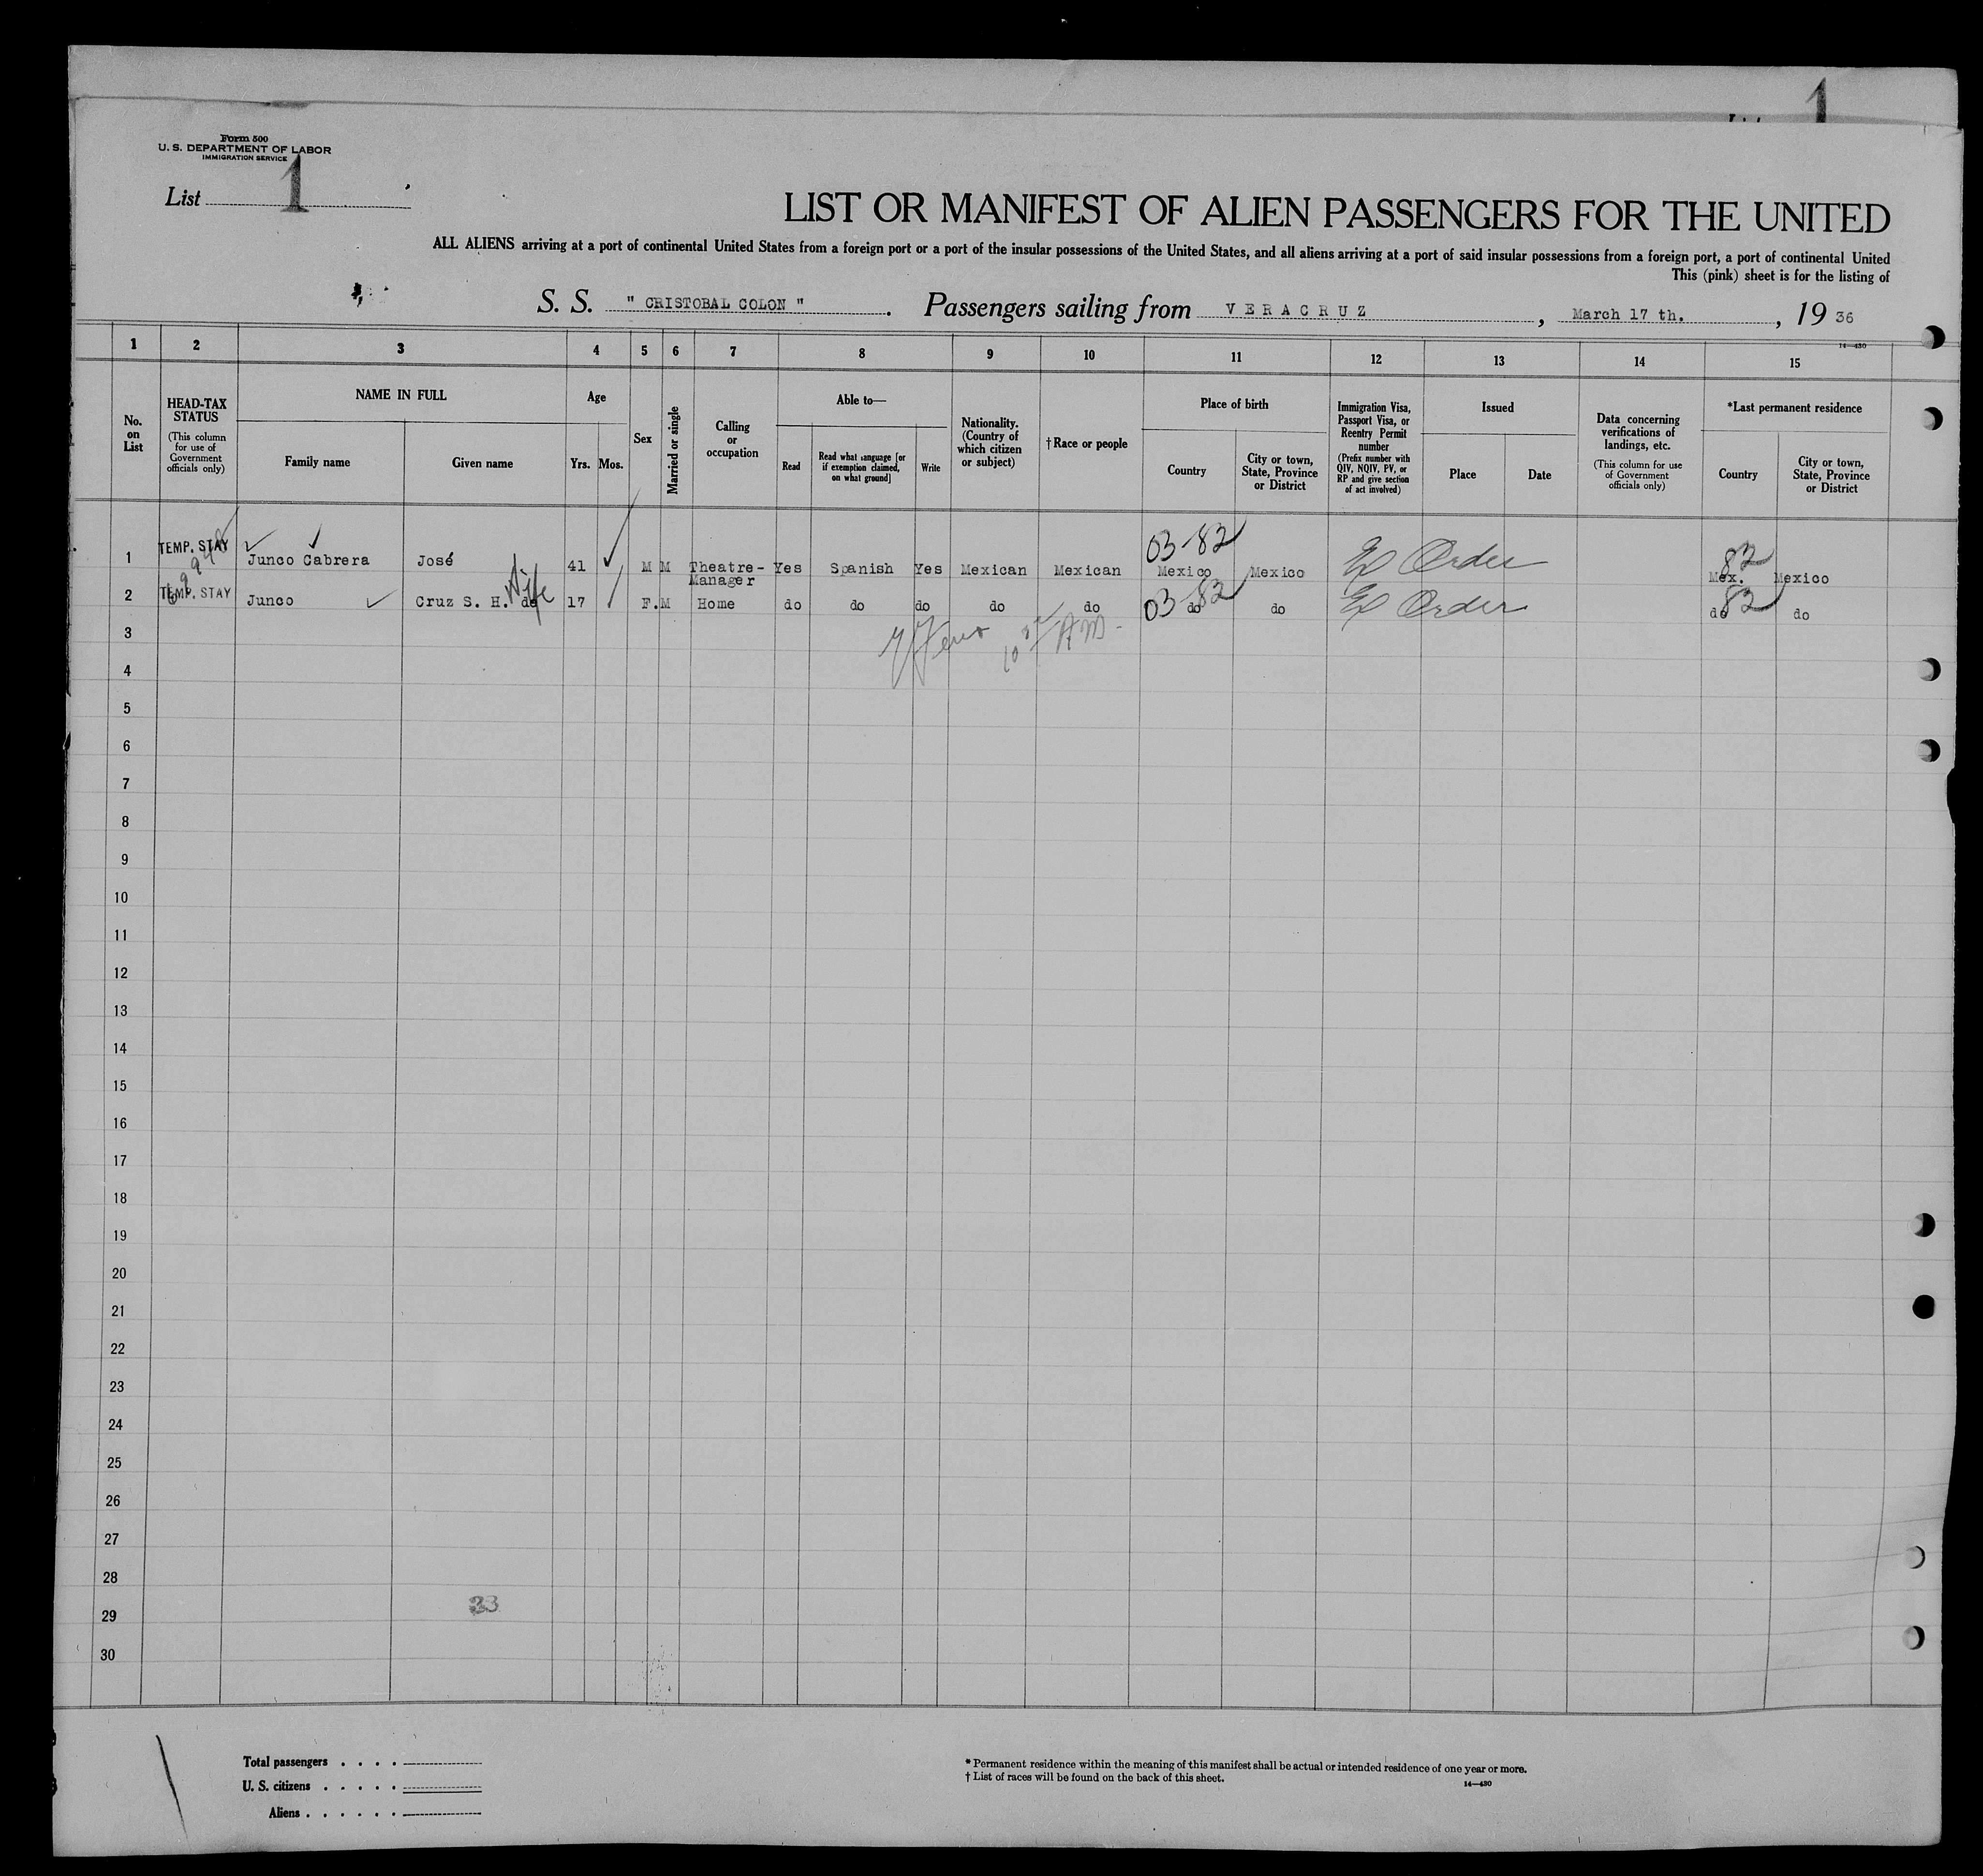 1
Form 500
U. S. DEPARTMENT OF LABOR
IMMIGRATION SERVICE
List 1
LIST OR MANIFEST OF ALIEN PASSENGERS FOR THE UNITED
ALL ALIENS arriving at a port of continental United States from a foreign port or a port of the insular possessions of the United States, and all aliens arriving at a port of said insular possessions from a foreign port, a port of continental United
This (pink) sheet is for the listing of
S. S. " CRISTOBAL COLON ". Passengers sailing from VERACRUZ, March 17 th., 19 36
14—430
1 2 3 4 5 6 7 8 9 10 11 12 13 14 15
No. on List
HEAD-TAX STATUS
(This column for use of Government officials only)
NAME IN FULL
Family name
Given name
Age
Yrs. Mos.
Sex
Married or single
Calling or occupation
Able to—
Read
Read what language [or if exemption claimed, on what ground]
Write
Nationality. (Country of which citizen or subject)
†Race or people
Place of birth
Country
City or town, State, Province or District
Immigration Visa, Passport Visa, or Reentry Permit number
(Prefix number with QIV, NQIV, PV, or RP and give section of act involved)
Issued
Place
Date
Data concerning verifications of landings, etc.
(This column for use of Government officials only)
*Last permanent residence
Country
City or town, State, Province or District
03-82 82
1 TEMP. STAY Junco Cabrera José 41 M M Theatre-Manager Yes Spanish Yes Mexican Mexican Mexico Mexico Ex Order Mex. Mexico
Wife
03-82 82
2 TEMP. STAY Junco Cruz S. H. de 17 F. M Home do do do do do do do Ex Order do do
3
4
5
6
7
8
9
10
11
12
13
14
15
16
17
18
19
20
21
22
23
24
25
26
27
28
29
33
30
Total passengers . . . .
U. S. citizens . . . . .
Aliens . . . . . .
* Permanent residence within the meaning of this manifest shall be actual or intended residence of one year or more.
† List of races will be found on the back of this sheet.
14—430